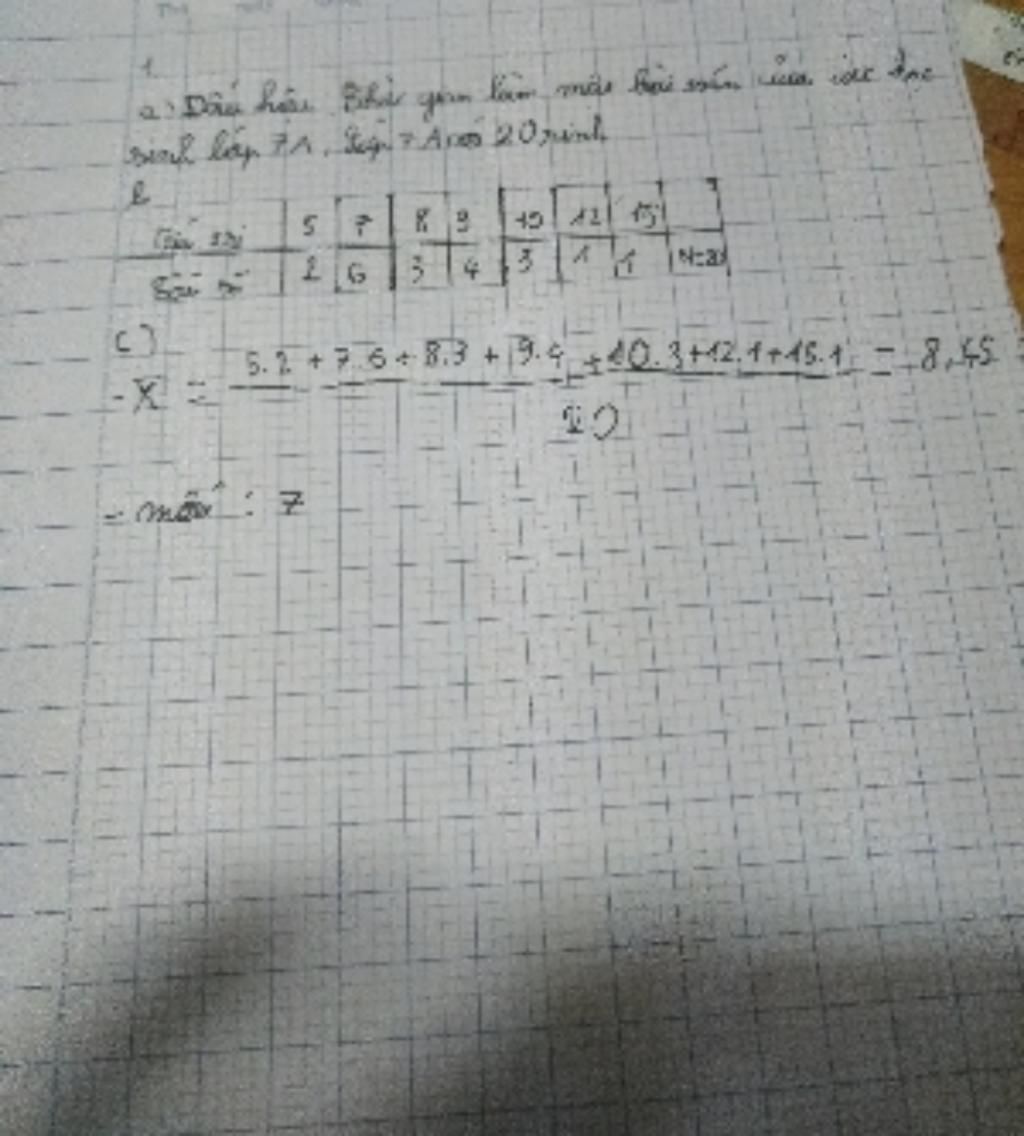 1
a. Dấu hiệu Thời gian làm một bài toán của các học
sinh lớp 7A. Lớp 7A có 20 sinh
b
5 7 8 9 10 12 15
2 6 3 4 3 1 1 N=20
c)
5.2 + 7.6 + 8.3 + 9.4 + 10.3+12.1+15.1 = 8,45
- X =
20
- mốt : 7